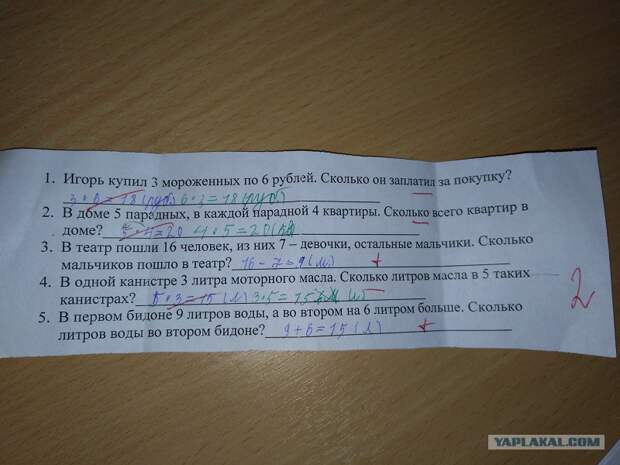 1. Игорь купил 3 мороженных по 6 рублей. Сколько он заплатил за покупку?
3 · 6 = 18 (руб) 6 · 3 = 18 (руб)
2. В доме 5 парадных, в каждой парадной 4 квартиры. Сколько всего квартир в
доме? 5 · 4 = 20 4 · 5 = 20 (кв)
3. В театр пошли 16 человек, из них 7 – девочки, остальные мальчики. Сколько
мальчиков пошло в театр? 16 – 7 = 9 (м) +
4. В одной канистре 3 литра моторного масла. Сколько литров масла в 5 таких
канистрах? 5 · 3 = 15 (л) 3 · 5 = 15 (л)
2
5. В первом бидоне 9 литров воды, а во втором на 6 литром больше. Сколько
литров воды во втором бидоне? 9 + 6 = 15 (л) +
YAPLAKAL.COM